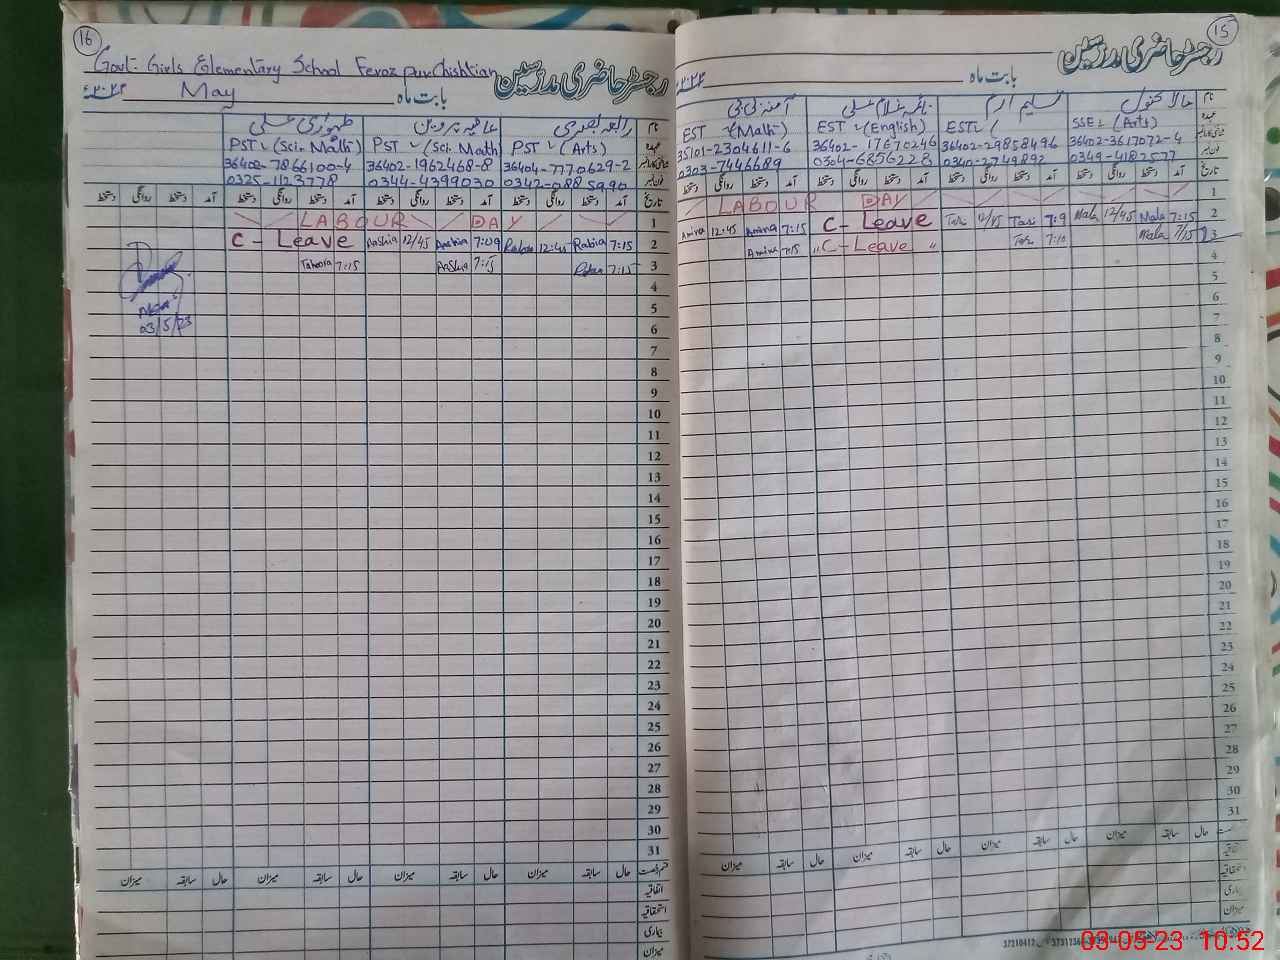 16
Govt. Girls Elementary School Feroz pur Chishtian
رجسٹر حاضری مدرسین
May
بابت ماہ
رابعہ بصری
نام
PST (Sci. Math)
PST (Sci. Math)
PST (Arts)
عہدہ
36402-7866100-4
36402-1962468-8
36404-7770629-2
0325-1123778
0344-4399030
تاریخ
آمد
دستخط
روانگی
دستخط
آمد
دستخط
روانگی
دستخط
آمد
دستخط
روانگی
دستخط
آمد
دستخط
روانگی
دستخط
LABOUR DAY
1
C - Leave
Aashia 12/45
Aashia 7:09
12:45
Rabia 7:15
2
Tahoora 7:15
Aashia 7:15
7:15
3
03/5/23
4
5
6
7
8
9
10
11
12
13
14
15
16
17
18
19
20
21
22
23
24
25
26
27
28
29
30
31
حال
سابقہ
میزان
حال
سابقہ
میزان
حال
سابقہ
میزان
حال
سابقہ
میزان
اتفاقیہ
استحقاقیہ
بیماری
میزان
15
رجسٹر حاضری مدرسین
بابت ماہ
نام
EST (Math)
EST (English)
EST
SSE (Arts)
عہدہ
35101-2304611-6
36402-17670246
36402-29858496
36402-3617072-4
0303-7446689
0304-6856228
0340-2749892
0349-4182577
تاریخ
آمد
دستخط
روانگی
دستخط
آمد
دستخط
روانگی
دستخط
آمد
دستخط
روانگی
دستخط
آمد
دستخط
روانگی
دستخط
LABOUR DAY
1
Amina 12:45
Amina 7:15
C - Leave
12/45
7:9
Mala 12/45
Mala 7:15
2
Amina 7:15
"C - Leave "
7:10
Mala 7/15
3
4
5
6
7
8
9
10
11
12
13
14
15
16
17
18
19
20
21
22
23
24
25
26
27
28
29
30
31
حال
سابقہ
میزان
حال
سابقہ
میزان
حال
سابقہ
میزان
حال
سابقہ
میزان
اتفاقیہ
استحقاقیہ
بیماری
میزان
03-05-23 10:52